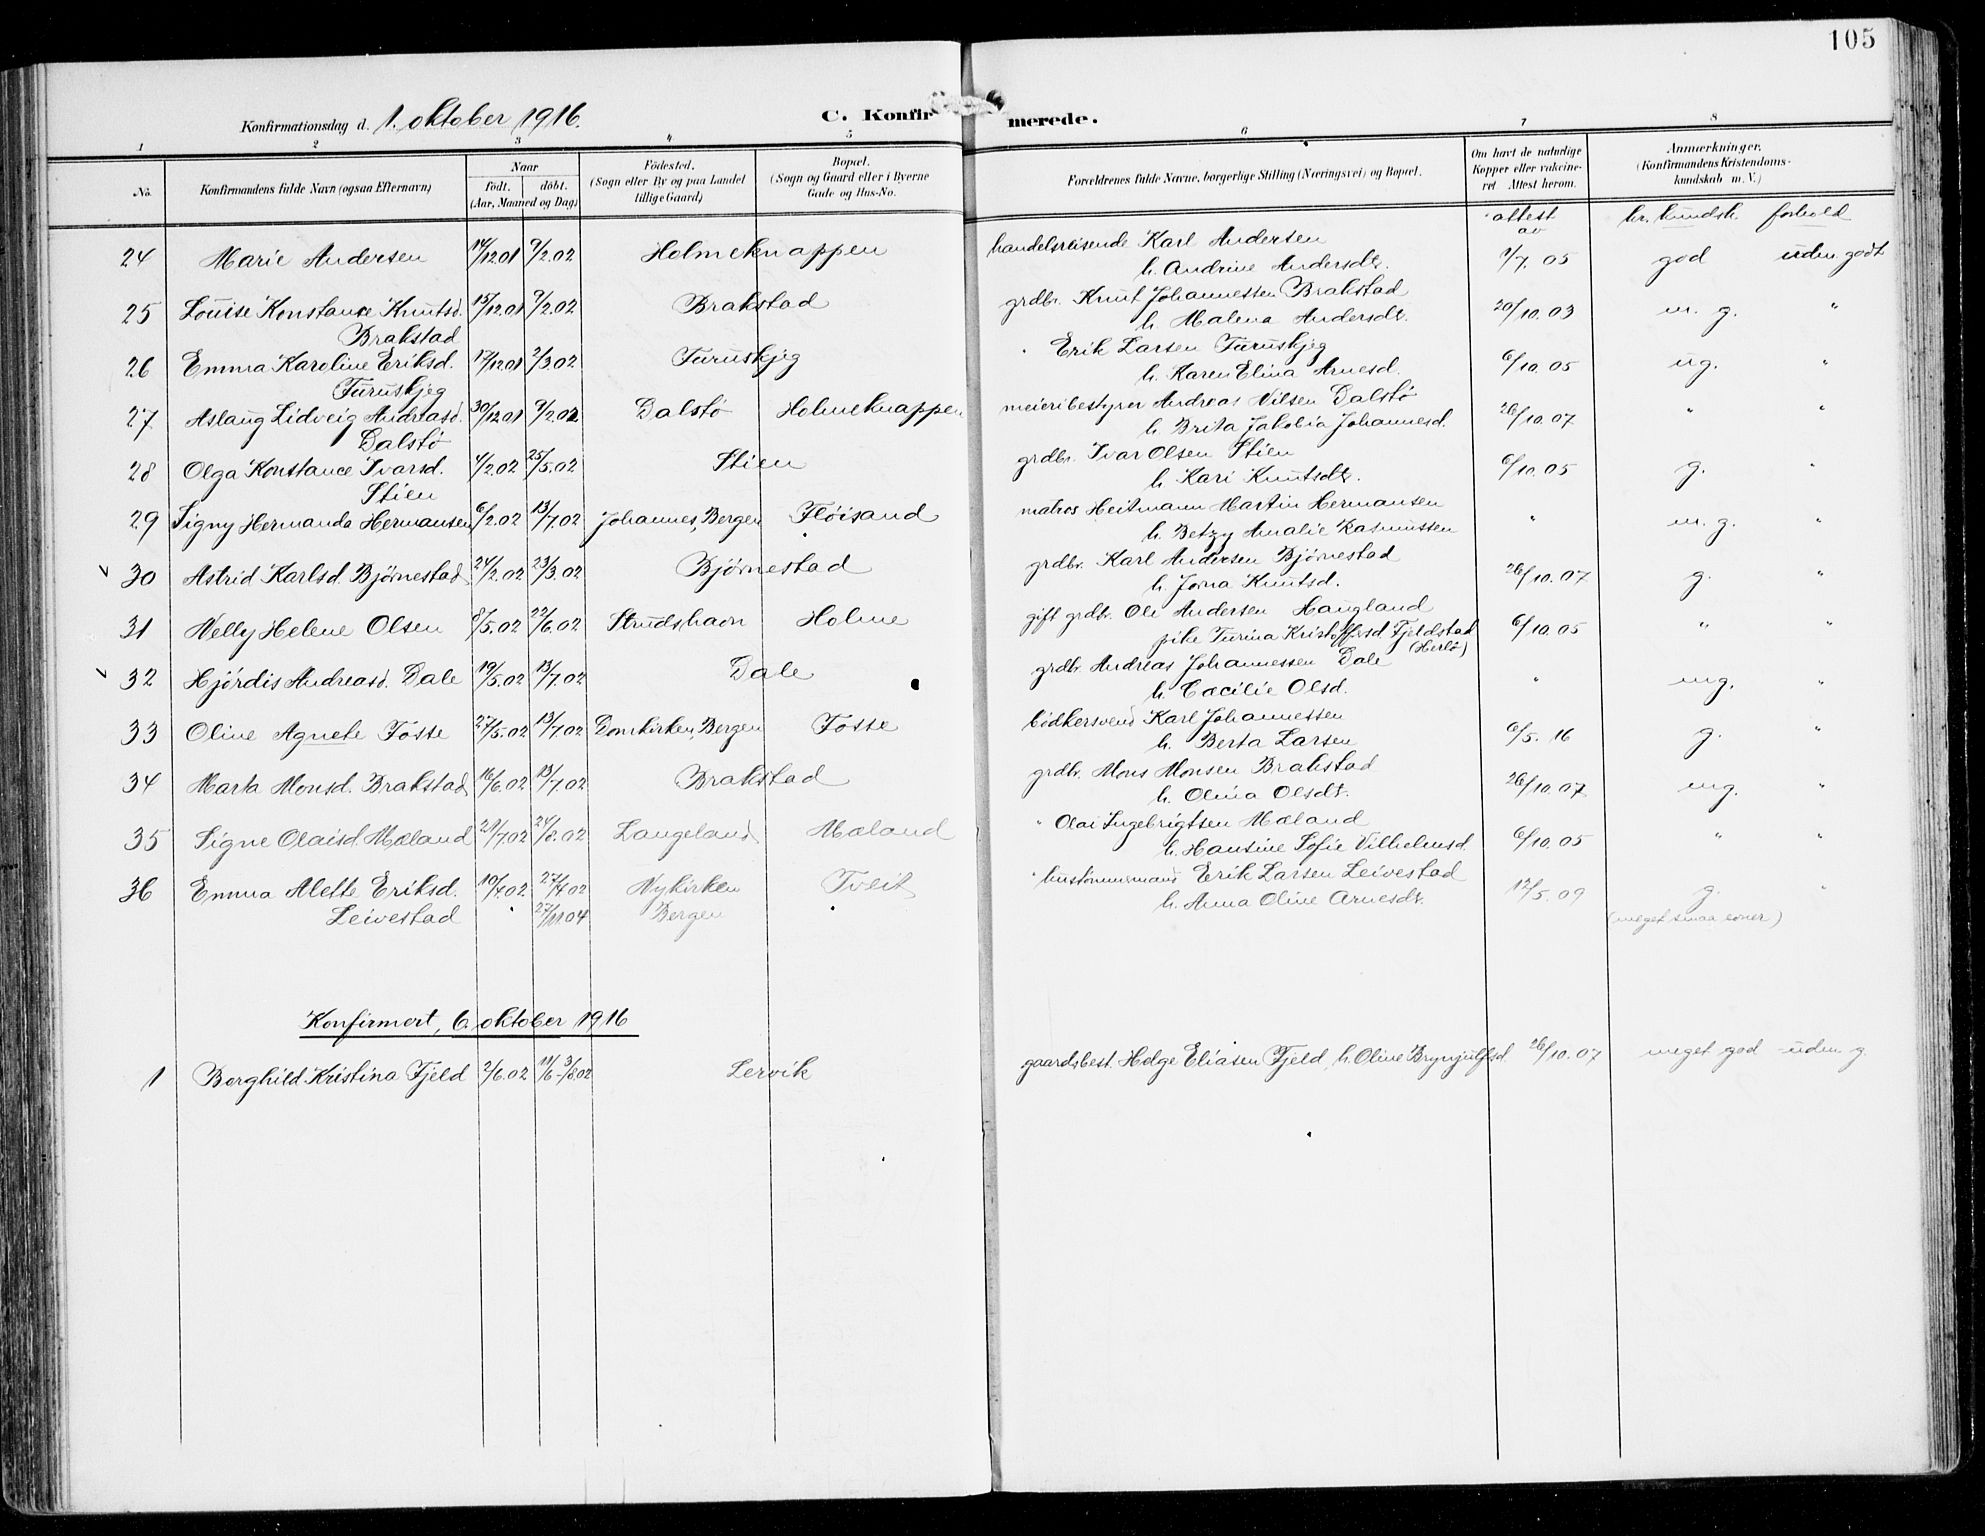 105
Konfirmationsdag d. 1. oktober 1916.
C. Konfirmerede.
1 2 3 4 5 6 7 8
No.
Konfirmandens fulde Navn (ogsaa Efternavn)
Naar
født. døbt.
(Aar, Maaned og Dag)
Fødested.
(Sogn eller By og paa Landet
tillige Gaard)
Bopæl.
(Sogn og Gaard eller i Byerne
Gade og Hus-No.
Forældrenes fulde Navne, borgerlige Stilling (Næringsvei) og Bopæl.
Om havt de naturlige
Kopper eller vakcine-
ret Attest herom.
Anmærkninger.
(Konfirmandens Kristendoms-
kundskab m. V.)
attest
av
kr. kundsk. forhold
24 Marie Andersen 14/12.01 9/2.02 Holmeknappen handelsreisende Karl Andersen 1/7.05 god uden godt
h. Andrine Andersdt.
25 Louise Konstance Knutsd. 15/12.01 9/2.02 Brakstad grdbr. Knut Johannessen Brakstad 20/10.03 m. g. "
Brakstad h. Malena Andersdt.
26 Emma Karoline Eriksd. 17/12.01 2/3.02 Furuskjeg " Erik Larsen Furuskjeg 6/10.05 ug. "
Furuskjeg h. Karen Elina Arnesd.
27 Aslaug Lidveig Andreasd. 30/12.01 9/2.02 Dalstø Holmeknappen meieribestyrer Andreas Nilsen Dalstø 26/10.07 " "
Dalstø h. Brita Jakobia Johannesd.
28 Olga Konstance Ivarsd. 4/2.02 25/5.02 Stien grdbr. Ivar Olsen Stien 6/10.05 g. "
Stien h. Kari Knutsdt.
29 Signy Hermanda Hermansen 6/2.02 13/7.02 Johannes, Bergen Fløisand matros Heitmann Martin Hermansen " m. g. "
h. Betzy Amalie Rasmussen
v 30 Astrid Karlsd. Bjørnestad 24/2.02 23/3.02 Bjørnestad grdbr. Karl Andersen Bjørnestad 26/10.07 g. "
h. Jorna Knutsd.
31 Nelly Helene Olsen 8/5.02 22/6.02 Strudshavn Holme gift grdbr. Ole Andersen Haugland 6/10.05 " "
pike Turina Kristoffersd Fjeldstad
(Herlø)
v 32 Hjørdis Andreasd. Dale 19/5.02 13/7.02 Dale grdbr. Andreas Johannessen Dale " mg. "
h. Cæcilie Olsd.
33 Oline Agnete Fosse 27/5.02 13/7.02 Domkirken, Bergen Fosse bødkersvend Karl Johannessen 6/5.16 g. "
h. Berta Larsen
34 Marta Monsd. Brakstad 16/6.02 13/7.02 Brakstad grdbr. Mons Monsen Brakstad 26/10.07 mg. "
h. Olina Olsdt.
35 Signe Olaisd. Mæland 29/7.02 24/8.02 Langeland Mæland " Olai Ingebrigtsen Mæland 6/10.05 " "
h. Hansine Sofie Vilhelmsd
36 Emma Alette Eriksd. 10/7.02 27/7.02 Nykirken Tveit " hustømmermand Erik Larsen Leivestad 12/5.09 g. "
Leivestad 27/11.04 Bergen h. Anna Oline Arnesdt. (meget smaa evner)
Konfirmert, 6. oktober 1916
1 Borghild Kristina Fjeld 2/6.02 11/6-3/8.02 Lervik gaardsbest. Helge Eliasen Fjeld, h. Oline Brynjulfsd 26/10.07 meget god - uden g.